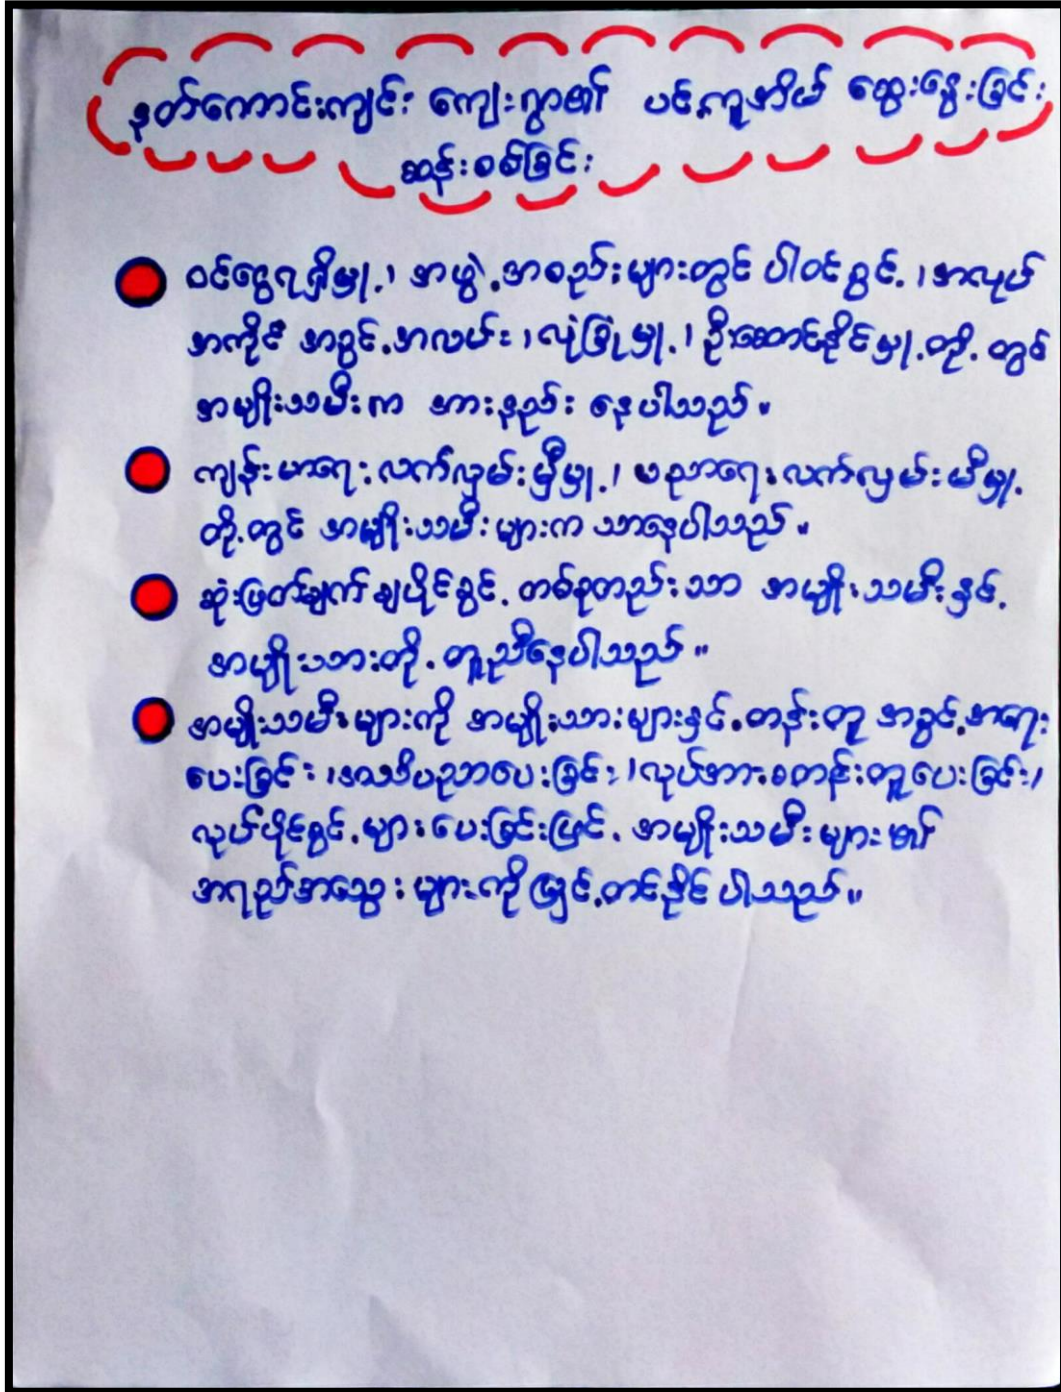 နတ်ကောင်းကျင်း ကျေးရွာ၏ ပင့်ကူအိမ် ဆွေးနွေးခြင်း
ဆန်းစစ်ခြင်း
ဝင်ငွေရရှိမှု့၊ အဖွဲ့အစည်းများတွင် ပါဝင်ခွင့်၊ အလုပ်
အကိုင် အခွင့်အလမ်း၊ လုံခြုံမှု့၊ ဦးဆောင်နိုင်မှု့တို့ တွင်
အမျိုးသမီးက အားနည်း နေပါသည်။
ကျန်းမာရေးလက်လှမ်းမှီမှု့၊ ပညာရေးလက်လှမ်းမီမှု့
တို့တွင် အမျိုးသမီးများက သာနေပါသည်။
ဆုံးဖြတ်ချက်ချပိုင်ခွင့် တစ်ခုတည်းသာ အမျိုးသမီးနှင့်
အမျိုးသားတို့ တူညီနေပါသည်။
အမျိုးသမီးများကို အမျိုးသားများနှင့်တန်းတူ အခွင့်အရေး
ပေးခြင်း၊ အသိပညာပေးခြင်း၊ လုပ်အားခတန်းတူပေးခြင်း၊
လုပ်ပိုင်ခွင့်များပေးခြင်းဖြင့် အမျိုးသမီးများ၏
အရည်အသွေးများကို မြှင့်တင်နိုင်ပါသည်။